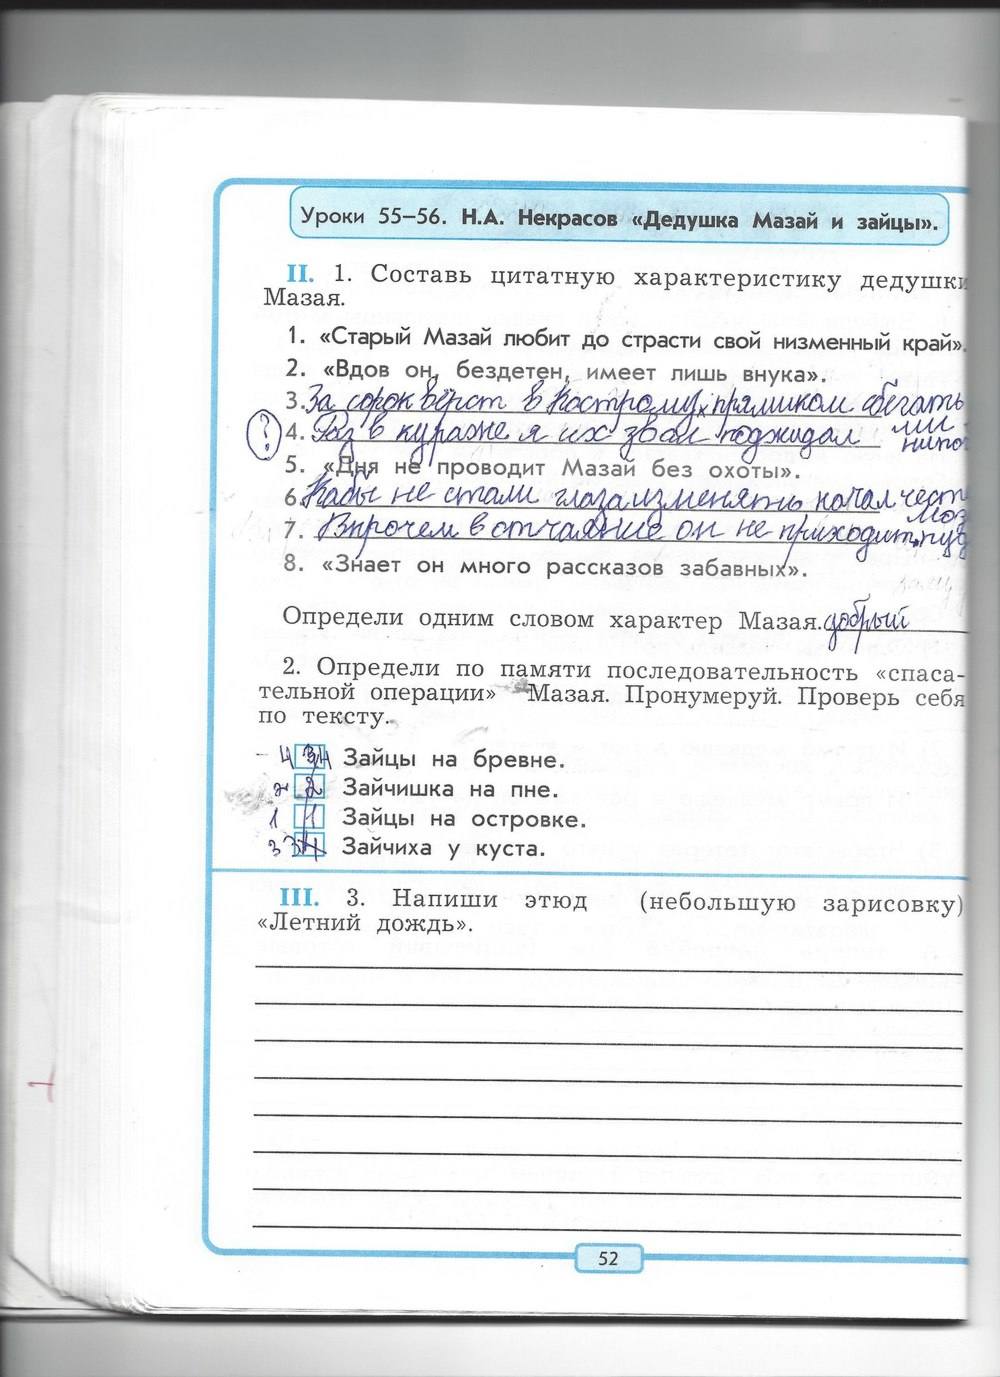 Уроки 55–56. Н.А. Некрасов «Дедушка Мазай и зайцы».
II. 1. Составь цитатную характеристику дедушки
Мазая.
1. «Старый Мазай любит до страсти свой низменный край».
2. «Вдов он, бездетен, имеет лишь внука».
3. За сорок вёрст в Кострому прямиком сбегать
4. Раз в кураже я их звал поджидал
(?)
5. «Дня не проводит Мазай без охоты».
6. Кабы не стали глаза изменять начал
7. Впрочем в отчаяние он не приходит
8. «Знает он много рассказов забавных».
Определи одним словом характер Мазая. добрый
2. Определи по памяти последовательность «спаса-
тельной операции» Мазая. Пронумеруй. Проверь себя
по тексту.
4 Зайцы на бревне.
2 2 Зайчишка на пне.
1 1 Зайцы на островке.
3 3 4 Зайчиха у куста.
III. 3. Напиши этюд (небольшую зарисовку)
«Летний дождь».
52